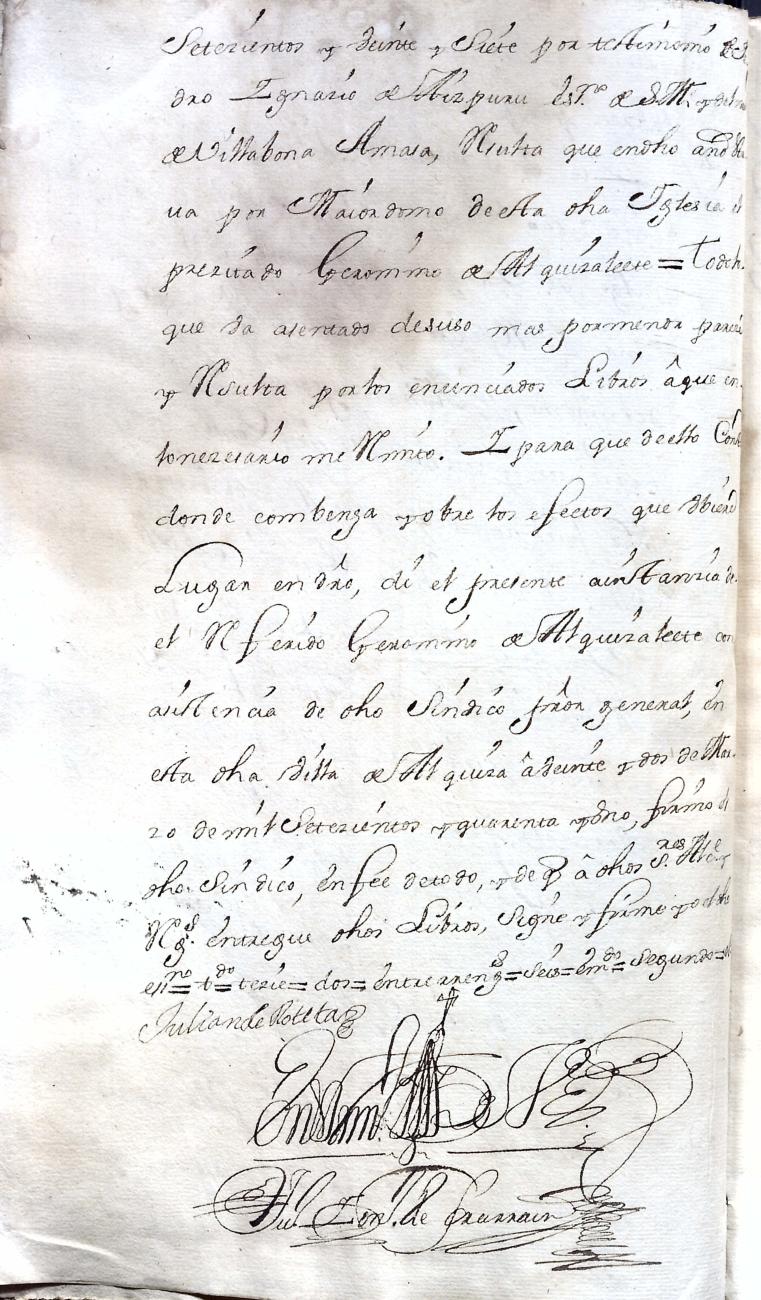 Setezientos y Veinte y Siete por testimonio de
dro Ignazio de Aizpuru esn.º de S. M. y del
de Villabona Amasa, Resulta que en dho año
va por Maiordomo de esta dha Iglesia el
prezitado Geronimo de Alquizalecte = Todo lo
que va asentado desuso mas pormenor
y Resulta por los enunciados Libros â que en
lo nezesario me Rmito. I para que de ello
donde combenga y obre los efectos que Ubiere
Lugar en dro, di el presente a instanzia de
el Rferido Geronimo de Alquizalecte con
asistencia de dho Sindico pror general, en
esta dha Villa de Alquiza â Veinte y dos de Mar
zo de mil Setezientos y quarenta y Uno, firmo el
dho Sindico, en fee de todo, y de q â dhos S.res Alce y
Rg.s entregue dhos Libros, Signe y firme yo el dho
esn.no = t.do = terze = dos = entrerreng.s = Seis = em.do = Segundo =
Julian de Roteta
En testim.º de Verd
Ju. Eon. de Irarrain